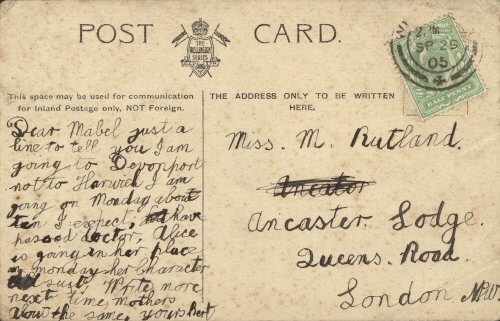 POST CARD.
THE
WELLINGTON
SERIES
2. M
SP 25
05
HALF PENNY
This space may be used for communication
for Inland Postage only, NOT Foreign.
THE ADDRESS ONLY TO BE WRITTEN
HERE.
Dear Mabel just a
line to tell you I am
going to Devonport
not to Harwich I am
going on Monday about
ten I expect, have
passed doctor, Alice
is going in her place
on monday her character
did suit. Write more
next time, mothers
about the same, yours Bert
Miss. M. Rutland.
Ancaster Lodge.
Queens. Road.
London. N.W.